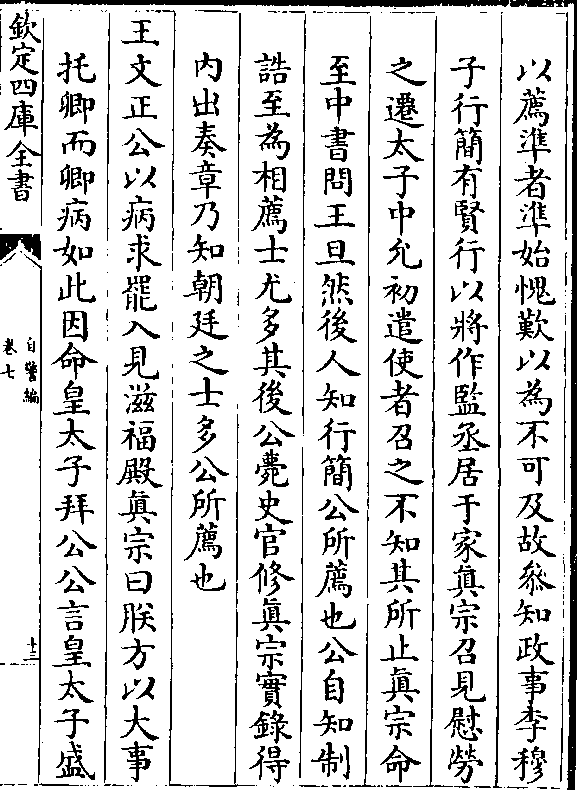 以薦準者準始愧歎以為不可及故叅知政事李穆
子行簡有賢行以將作監丞居于家真宗召見慰勞
之遷太子中允初遣使者召之不知其所止真宗命
至中書問王旦然後人知行簡公所薦也公自知制
誥至為相薦士尤多其後公薨史官修真宗實錄得
内出奏章乃知朝廷之士多公所薦也
王文正公以病求罷入見滋福殿真宗曰朕方以大事
托卿而卿病如此因命皇太子拜公公言皇太子盛
欽定四庫全書
自警編
卷七
十三